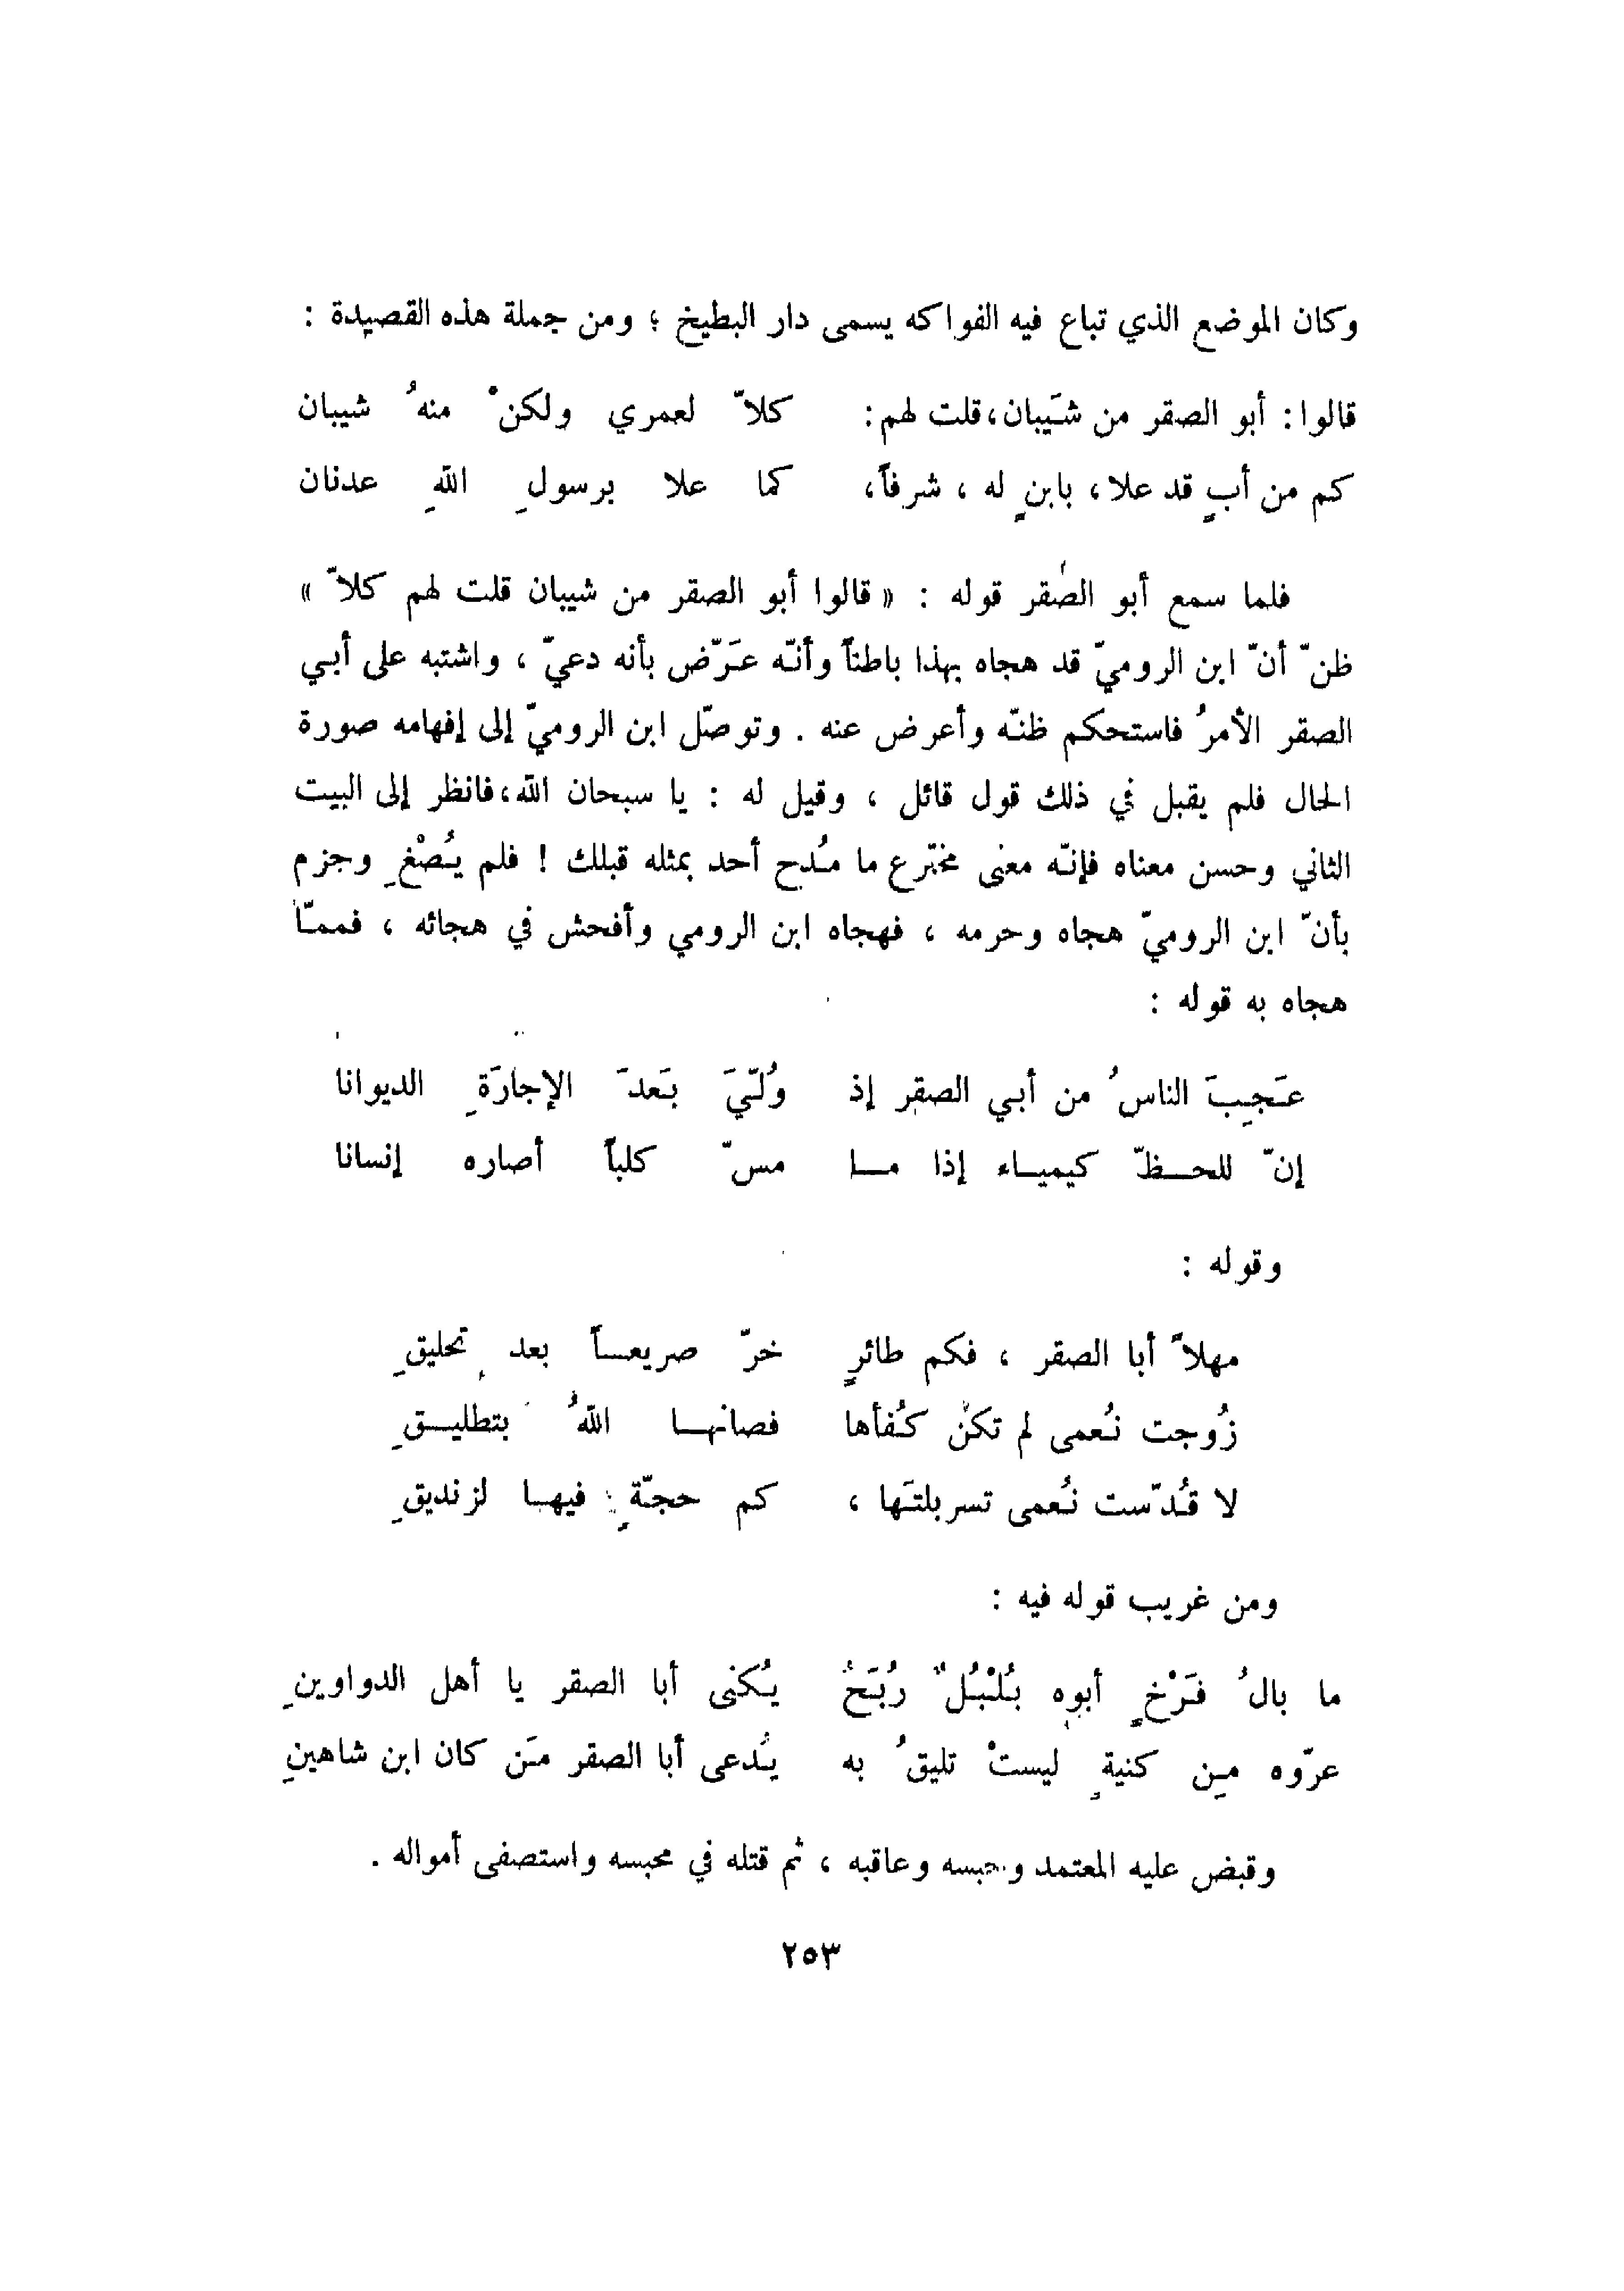 وكان الموضع الذي تباع فيه الفواكه يسمى دار البطيخ ؛ ومن جملة هذه القصيدة :
قالوا : أبو الصقر من شَيبان، قلت لهم : كلاّ لعمري ولكنْ منهُ شيبان
كم من أبٍ قد علا ، بابنٍ له ، شرفاً ، كما علا برسولِ اللهِ عدنان
فلما سمع أبو الصقر قوله : « قالوا أبو الصقر من شيبان قلت لهم كلاّ »
ظنّ أنّ ابن الروميّ قد هجاه بهذا باطناً وأنّه عَرّض بأنه دعيّ ، واشتبه على أبي
الصقر الأمرُ فاستحكم ظنّه وأعرض عنه . وتوصّل ابن الروميّ إلى إفهامه صورة
الحال فلم يقبل في ذلك قول قائل ، وقيل له : يا سبحان الله، فانظر إلى البيت
الثاني وحسن معناه فإنّه معنى مخترع ما مُدح أحد بمثله قبلك ! فلم يُصْغِ وجزم
بأنّ ابن الروميّ هجاه وحرمه ، فهجاه ابن الرومي وأفحش في هجائه ، فممّا
هجاه به قوله :
عَجِبَ الناسُ من أبي الصقر إذ وُلّيَ بَعدَ الإجارَةِ الديوانا
إنّ للحظّ كيمياء إذا ما مسّ كلباً أصاره إنسانا
وقوله :
مهلاً أبا الصقر ، فكم طائرٍ خرّ صريعاً بعد تحليقِ
زُوجت نُعمى لم تكن كُفأها فصانها اللهُ بتطليقِ
لا قُدّست نُعمى تسربلتَها ، كم حجّةٍ فيها لزنديقِ
ومن غريب قوله فيه :
ما بالُ فَرْخٍ أبوه بُلْبُلٌ رُبَحٌ يُكنى أبا الصقر يا أهل الدواوينِ
عرّوه مِن كنيةٍ ليستْ تليقُ به يُدعى أبا الصقر مَن كان ابن شاهينِ
وقبض عليه المعتمد وحبسه وعاقبه ، ثم قتله في محبسه واستصفى أمواله .
٢٥٣